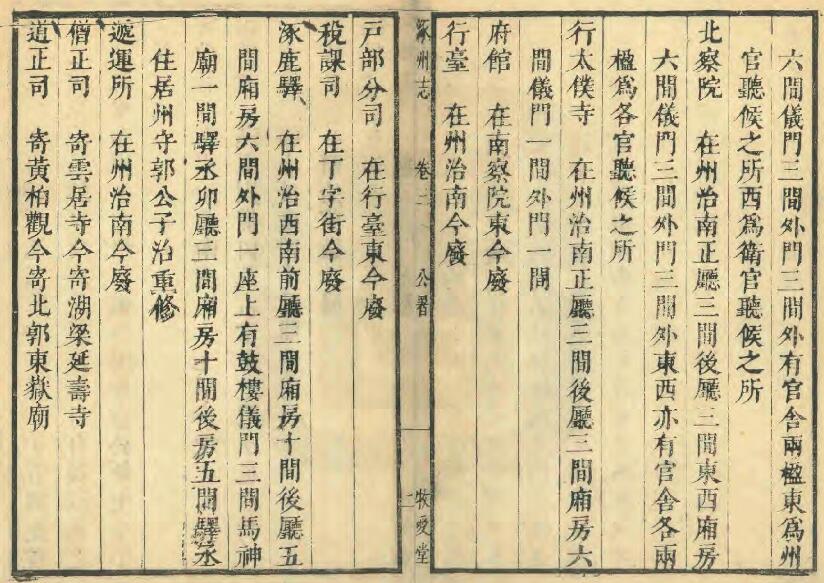 六間儀門三間外門三間外有官舍兩楹東爲州
官聽候之所西爲衛官聽候之所
北察院 在州治南正廳三間後廳三間東西廂房
六間儀門三間外門三間外東西亦有官舍各兩
楹爲各官聽候之所
行太僕寺 在州治南正廳三間後廳三間廂房六
間儀門一間外門一間
府館 在南察院東今廢
行臺 在州治南今廢
涿州志 卷二 公署 牧愛堂
戶部分司 在行臺東今廢
稅課司 在丁字街今廢
涿鹿驛 在州治西南前廳三間廂房十間後廳五
間廂房六間外門一座上有鼓樓儀門三間馬神
廟一間驛丞卯廳三間廂房十間後房五間驛丞
住居州守郭公子治重修
遞運所 在州治南今廢
僧正司 寄雲居寺今寄湖梁延壽寺
道正司 寄黃柏觀今寄北郭東嶽廟